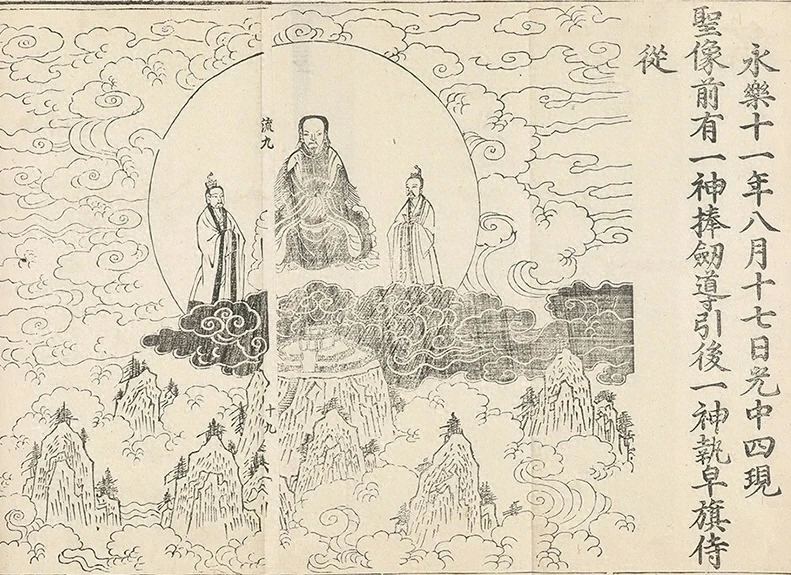 永樂十一年八月十七日光中四現
聖像前有一神捧劒導引後一神執皁旗侍
從
流九
十九